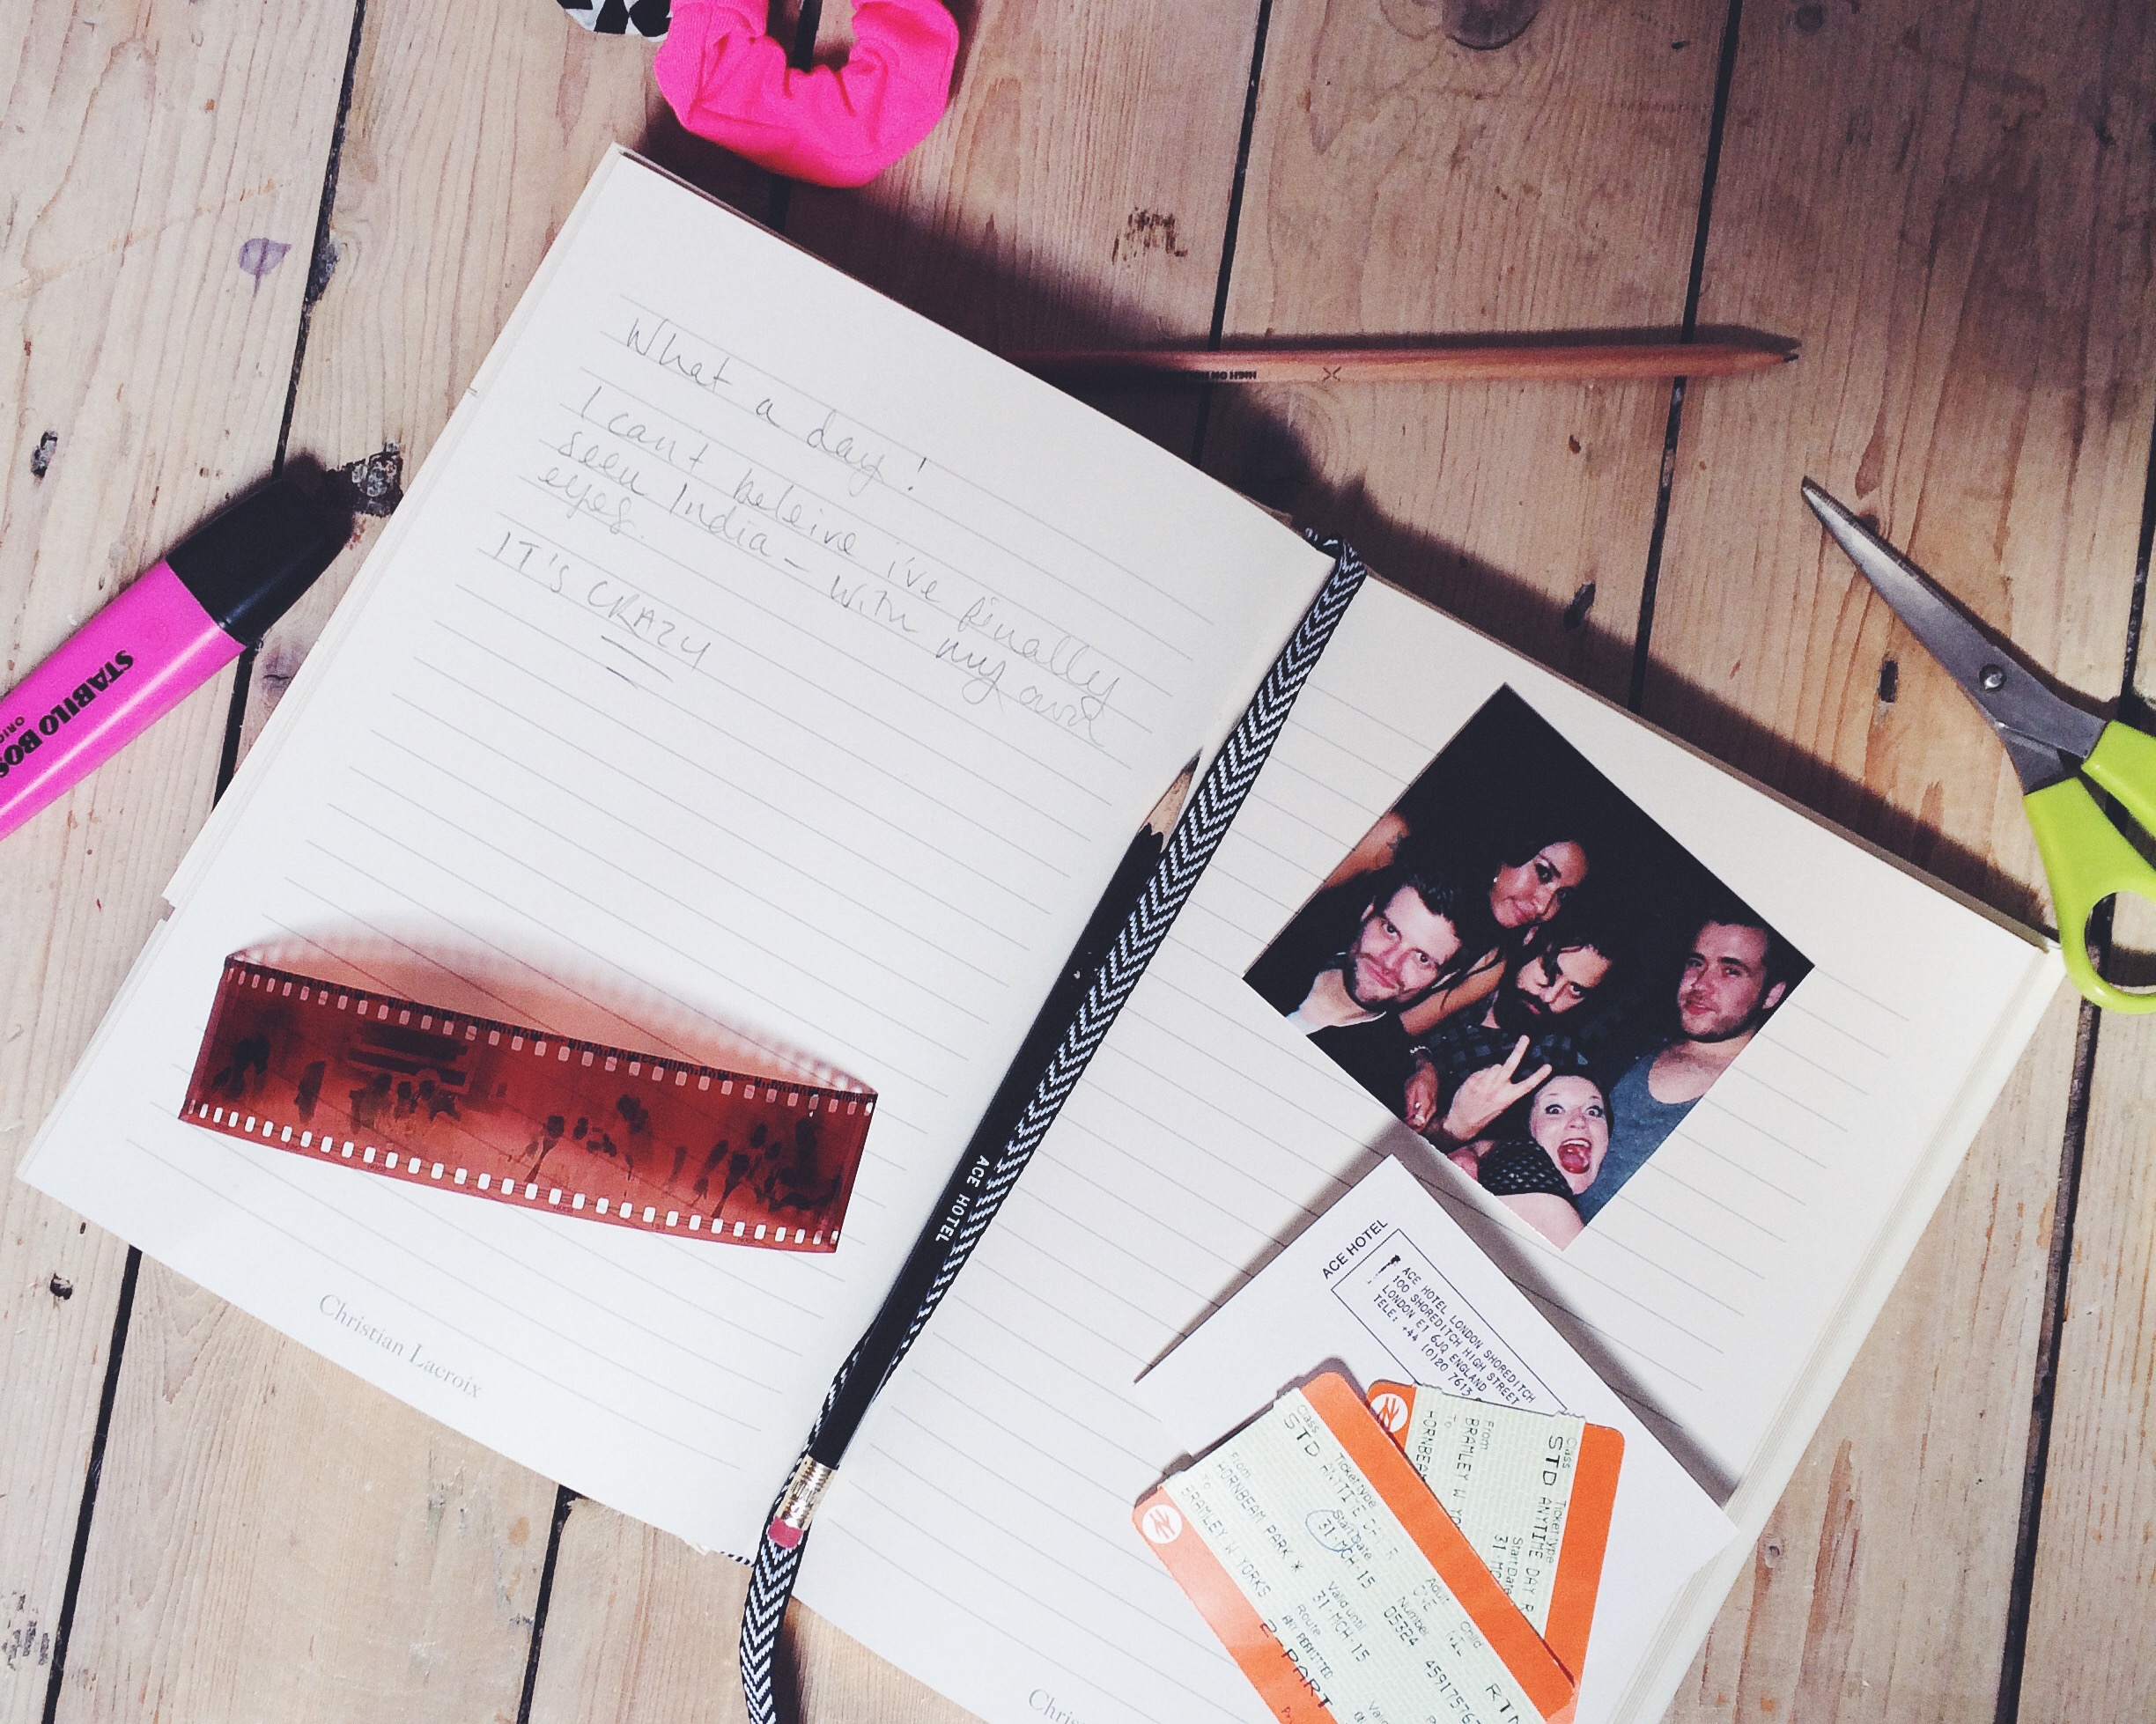 What a day!
I can't beleive i've finally
seen India - with my own
eyes.
IT'S CRAZY
STABILO BOS
ORIG
HIGH ON
ACE HOTEL
Christian Lacroix
ACE HOTEL
ACE HOTEL LONDON SHOREDITCH
100 SHOREDITCH HIGH STREET
LONDON E1 6JQ ENGLAND
TELE: +44 (0)20 7613
Class Ticket type Adult Child
STD ANYTIME DAY R ONE NIL RTN
Start date Number
31 MCH-15 05324 4591757
From Valid until
HORNBEAM PARK * 31 MCH-15
To Route
BRAMLEY W YORKS ANY PERMITTED
2-PART
Class Ticket type
STD ANYTIME DAY R
Start Date
31-MC
From
BRAMLEY W YO
To
HORNBEA
Chris